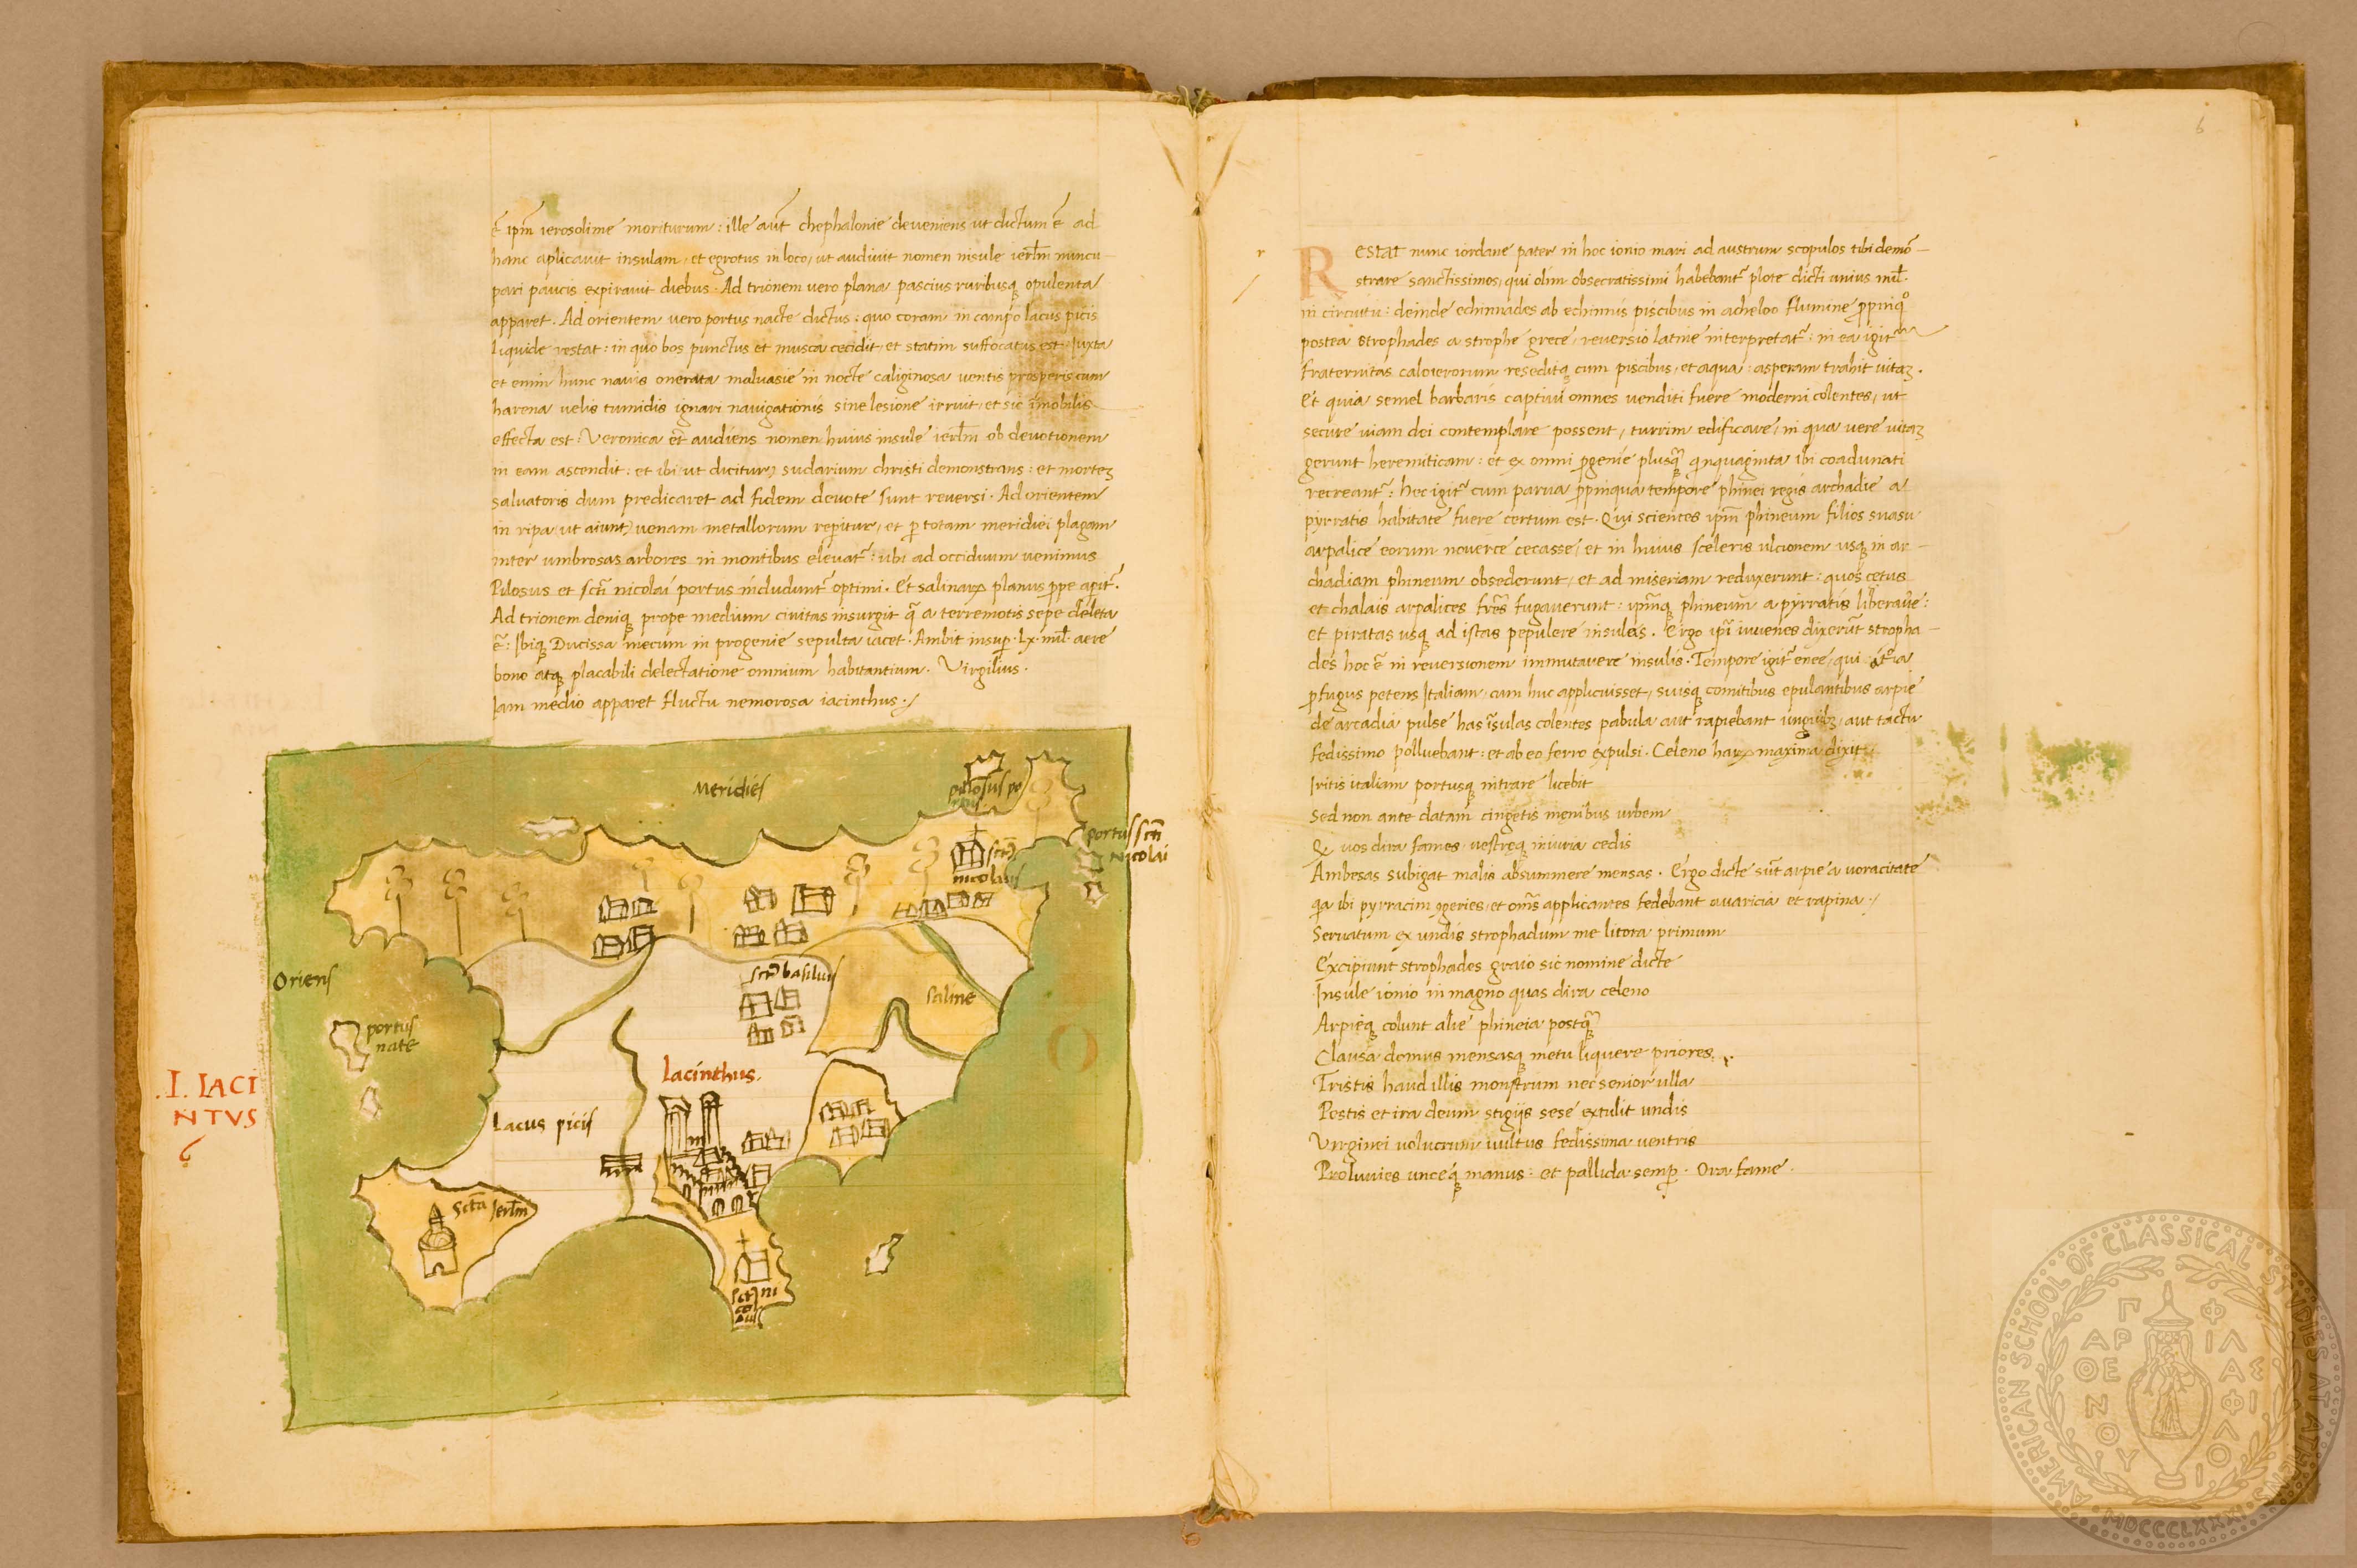 ē ipm̄ ierosolime moriturum : ille aūt chephalonie deveniens ut dictum ē ad
hanc aplicavit insulam, et egrotus in loco, ut audivit nomen insule ierl̄m nuncu-
pari paucis expiravit diebus. Ad trionem vero plana pascuis ruribusq opulenta
apparet. Ad orientem vero portus nacte dictus : quo coram in campo lacus picis
liquide restat : in quo bos punctus et musca cecidit, et statim suffocatus est. Iuxta
et enim hunc navis onerata malvasie in nocte caliginosa ventis prosperis cum
harena velis tumidis ignari navigationis sine lesione irruit, et sic īmobilis
effecta est : Veronica et audiens nomen huius insule ierl̄m ob devotionem
in eam ascendit : et ibi, ut dicitur, sudarium christi demonstrans : et mortez
salvatoris dum predicaret ad fidem devote sunt reversi. Ad orientem
in ripa, ut aiunt, venam metallorum reperitur, et p totam meridiei plagam
inter umbrosas arbores in montibus elevat̄ : ubi ad occiduum venimus
Pilosus et sct̄i nicolai portus includunt̄ optimi. Et salinarꝝ planus ppe apit̄.
Ad trionem deniq prope medium civitas insurgit q̄ a terremotis sepe deleta
ē : Ibiq Ducissa mecum in progenie sepulta iacet. Ambit insup. lx. mil̄. aere
bono atq placabili delectatione omnium habitantium. Virgilius.
Iam medio apparet fluctu nemorosa iacinthus./
Meridies
pilosus po
rtus
portus sct̄i
Nicolai
sct̄s
nicolaus
Oriens
sct̄s basilius
saline
portus
nate
Iacinthus.
.I. IACI
NTVS
6
Lacus picis
Sct̄a Ierl̄m
sct̄s ni
col
aus
6
r
Restat nunc iordane pater in hoc ionio mari ad austrum scopulos tibi demō-
strare sanctissimos, qui olim obsecratissimi habebant̄ plote dicti unius mil̄.
in circuitu : deinde echinnades ab echinnis piscibus in acheloo flumine ppinqo
postea strophades a strophe grece, reversio latine interpretat̄ : in ea igit̄
fraternitas caloierorum reseditq cum piscibus, et aqua : asperam trahit vitaz.
Et quia semel barbaris captivi omnes venditi fuere moderni colentes, ut
secure viam dei contemplare possent, turrim edificare, in qua vere vitaz
gerunt heremiticam : et ex omni pgenie plusq̄ qinquaginta ibi coadunati
recreant̄ : hec igit̄ cum parva ppinqua tempore phinei regis archadie a
pyrratis habitate fuere certum est. Qui scientes ipm̄ phineum filios suasu
arpalice eorum noverce cecasse, et in huius sceleris ulcionem usq in ar-
chadiam phineum obsederunt, et ad miseriam reduxerunt : quos cetus
et chalais arpalices frēs fugaverunt : ipm̄q phineum a pyrratis liberavē :
et piratas usq ad istas pepulere insulas. Ergo ipī iuvenes dixerūt stropha-
des hoc ē in reversionem immutavere insulis. Tempore igit̄ enee, qui
pfugus petens Italiam, cum huc applicuisset, suisq comitibus epulantibus arpie
de arcadia pulse has īsulas colentes pabula aut rapiebant unguibz, aut tactu
fedissimo polluebant : et ab eo ferro expulsi. Celeno harꝝ maxima dixit.
Iritis italiam portusq intrare licebit
Sed non ante datam cingetis menibus urbem
Q vos dira fames vestreq iniuria cedis
Ambesas subigat malis absummere mensas. Ergo dicte sūt arpie a voracitate
qa ibi pyrratim 9geries, et om̄s applicantes fedebant avaricia et rapina./
Servatum ex undis strophadum me litora primum
Excipiunt strophades graio sic nomine dicte
Insule ionio in magno quas dira celeno
Arpieq colunt alie phineia postq̄
Clausa domus mensasq metu liquere priores.
Tristis haud illis monstrum nec senior ulla
Pestis et ira deum stigiis sese extulit undis
Virginei volucrum vultus fedissima ventris
Proluvies unceq manus : et pallida semp. Ora fame.
AMERICAN SCHOOL OF CLASSICAL STUDIES AT ATHENS
MDCCCLXXXI
ΠΑΡΘΕΝΟΥ ΦΙΛΑΣ ΦΙΛΟΙ